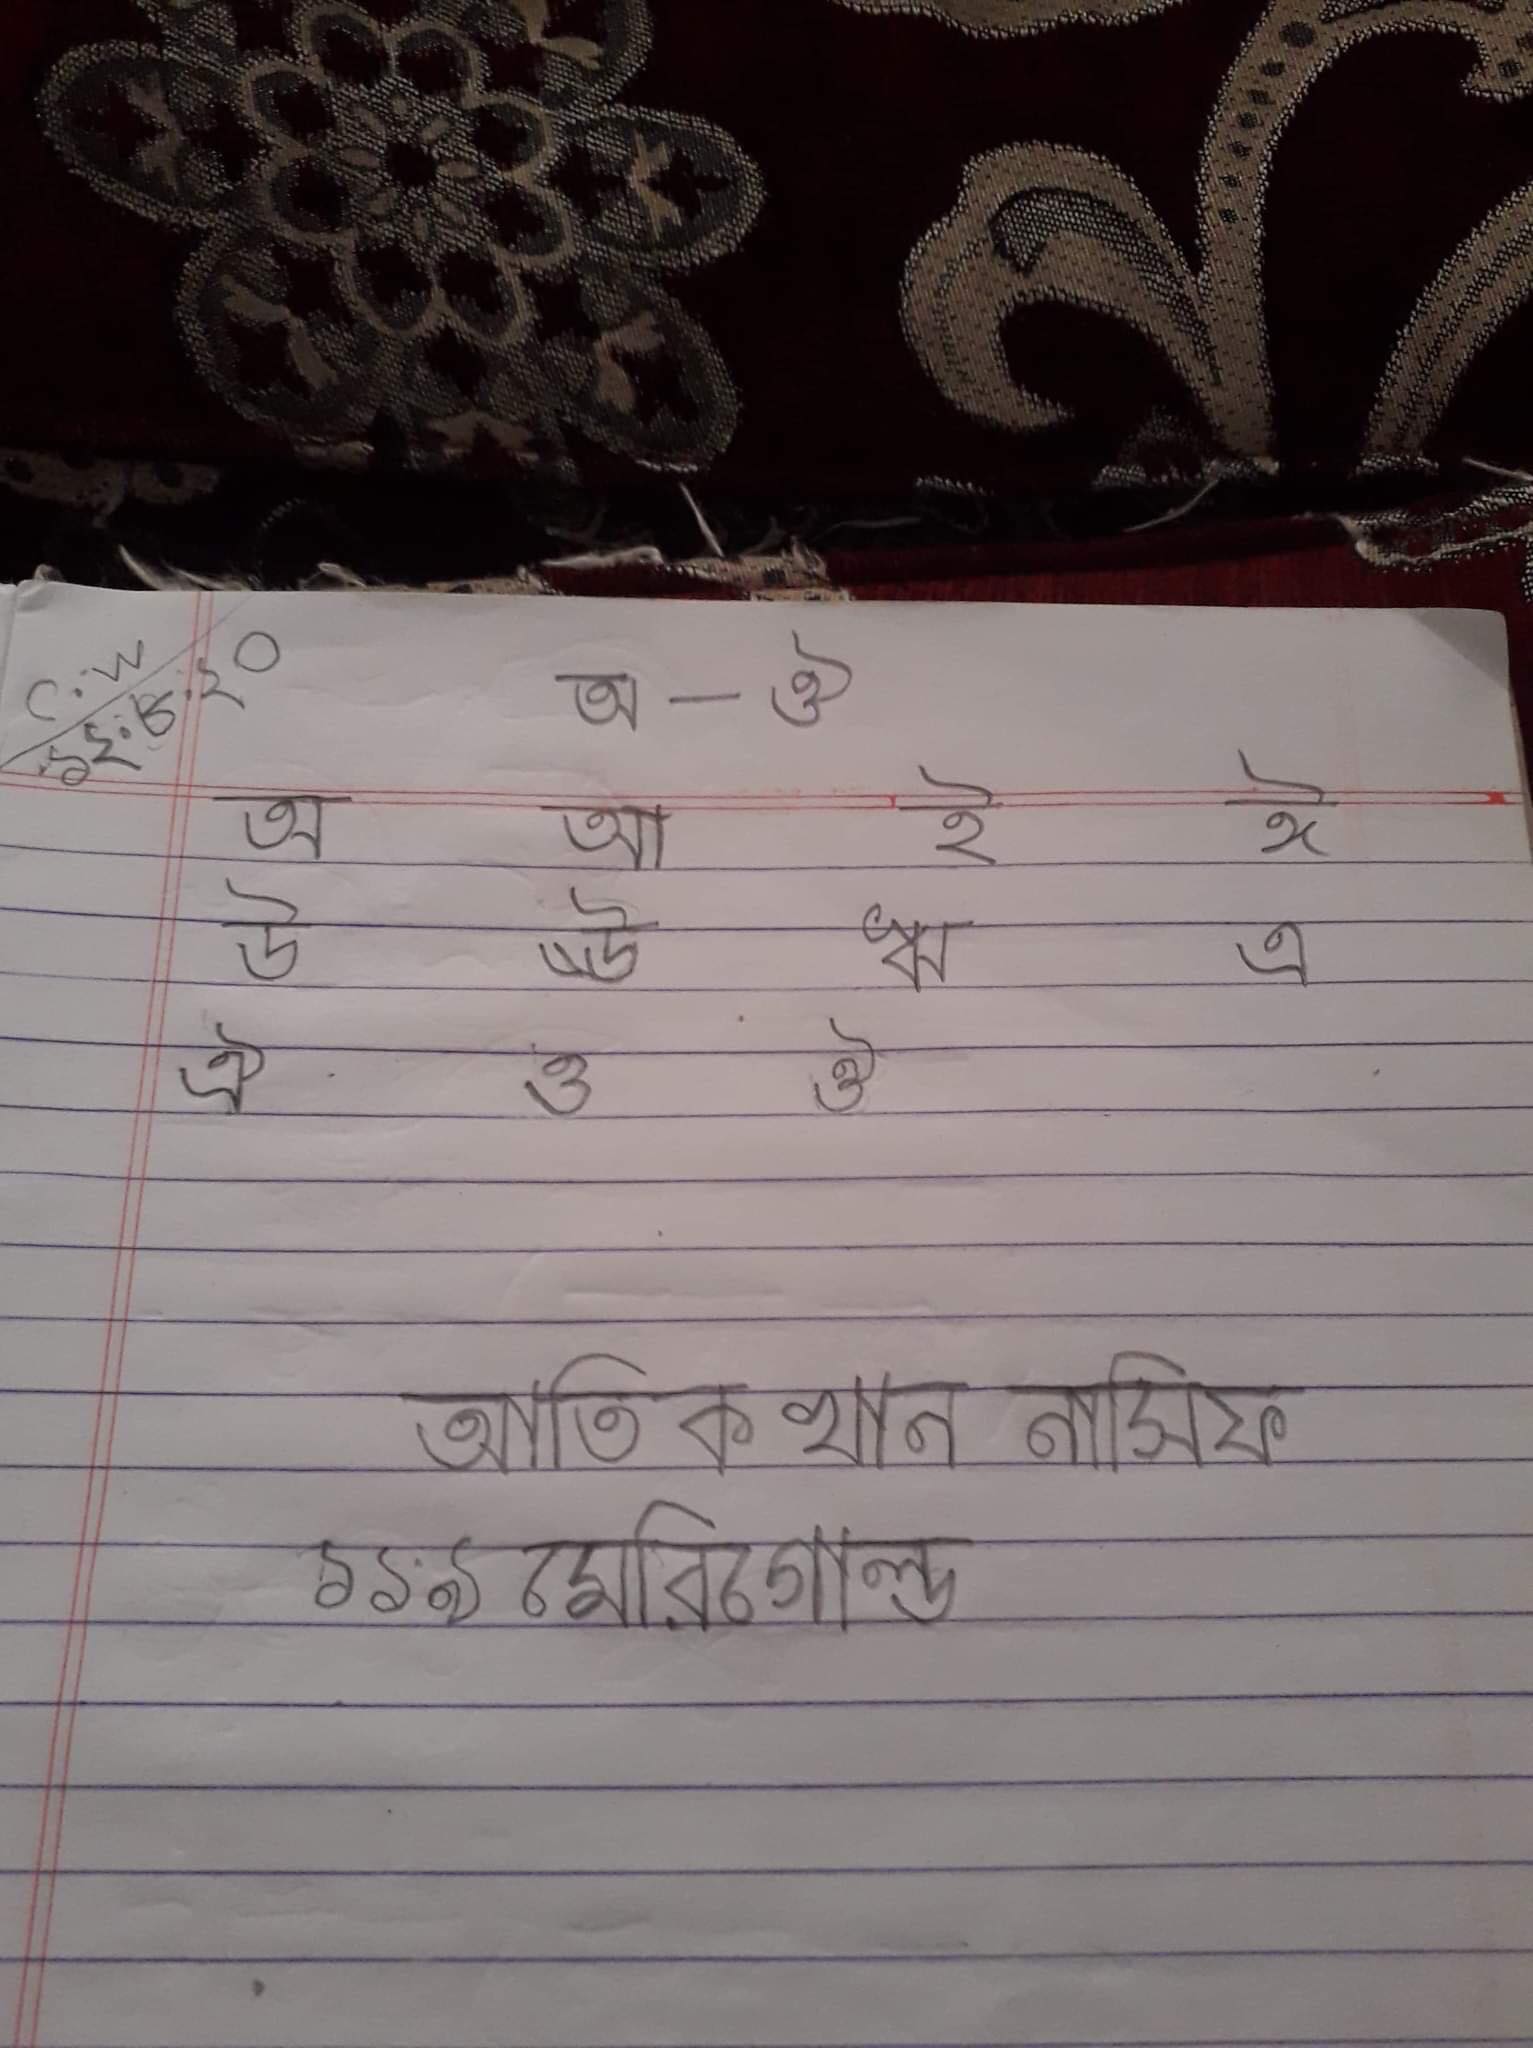 C.W
অ – ঔ
১২.৮.২০
অ আ ই ঈ
উ ঊ ঋ এ
ঐ ও ঔ
আতিক খান নাসিফ
১১৯ মেরিগোল্ড